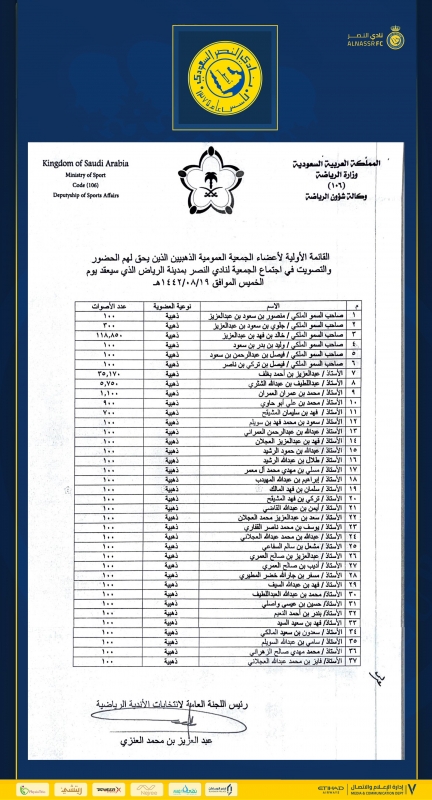 نادي النصر
ALNASSR FC
نادي النصر السعودي
Kingdom of Saudi Arabia
Ministry of Sport
Code (106)
Deputyship of Sports Affairs
المملكة العربية السعودية
وزارة الرياضة
(١٠٦)
وكالة شؤون الرياضة
القائمة الأولية لأعضاء الجمعية العمومية الذهبيين الذين يحق لهم الحضور
والتصويت في اجتماع الجمعية لنادي النصر بمدينة الرياض الذي سيعقد يوم
الخميس الموافق ١٤٤٢/٠٨/١٩هـ
م الاسم نوعية العضوية عدد الأصوات
١ صاحب السمو الملكي / منصور بن سعود بن عبدالعزيز ذهبية ١٠٠
٢ صاحب السمو الملكي / جلوي بن سعود بن عبدالعزيز ذهبية ٣٠٠
٣ صاحب السمو الملكي / خالد بن فهد بن عبدالعزيز ذهبية ١١٨,٨٥٠
٤ صاحب السمو الملكي / وليد بن بدر بن سعود ذهبية ١٠٠
٥ صاحب السمو الملكي / فيصل بن عبدالرحمن بن سعود ذهبية ١٠٠
٦ صاحب السمو الملكي / فيصل بن تركي بن ناصر ذهبية ١٠٠
٧ الأستاذ / عبدالعزيز بن أحمد بغلف ذهبية ٢٥,١٧٠
٨ الأستاذ / عبداللطيف بن عبدالله الشثري ذهبية ٥,٧٥٠
٩ الأستاذ / محمد بن عمران العمران ذهبية ١,١٠٠
١٠ الأستاذ / محمد بن علي أبو حاوي ذهبية ٩٠٠
١١ الأستاذ / فهد بن سليمان المشيقح ذهبية ٧٠٠
١٢ الأستاذ / سعود بن محمد فهد بن سويلم ذهبية ١٠٠
١٣ الأستاذ / عبدالله بن عبدالرحمن العمراني ذهبية ١٠٠
١٤ الأستاذ / فهد بن عبدالعزيز العجلان ذهبية ١٠٠
١٥ الأستاذ / عبدالله بن حمود الرشيد ذهبية ١٠٠
١٦ الأستاذ / طلال بن عبدالله الرشيد ذهبية ١٠٠
١٧ الأستاذ / مسلي بن مهدي محمد آل معمر ذهبية ١٠٠
١٨ الأستاذ / إبراهيم بن عبدالله المهيدب ذهبية ١٠٠
١٩ الأستاذ / سلمان بن فهد المالك ذهبية ١٠٠
٢٠ الأستاذ / تركي بن فهد المشيقح ذهبية ١٠٠
٢١ الأستاذ / أيمن بن عبدالله القاضي ذهبية ١٠٠
٢٢ الأستاذ / سعد بن عبدالعزيز محمد العجلان ذهبية ١٠٠
٢٣ الأستاذ / يوسف بن محمد ناصر القفاري ذهبية ١٠٠
٢٤ الأستاذ / عبدالله بن محمد عبدالله العجلاني ذهبية ١٠٠
٢٥ الأستاذ / مشعل بن سالم السفاعي ذهبية ١٠٠
٢٦ الأستاذ / عبدالعزيز بن صالح العمري ذهبية ١٠٠
٢٧ الأستاذ / أديب بن صالح العمري ذهبية ١٠٠
٢٨ الأستاذ / مسفر بن جارالله خضر المطيري ذهبية ١٠٠
٢٩ الأستاذ / فهد بن عبدالله السيف ذهبية ١٠٠
٣٠ الأستاذ / محمد بن عبدالله العبداللطيف ذهبية ١٠٠
٣١ الأستاذ / حسين بن عيسى واصلي ذهبية ١٠٠
٣٢ الأستاذ / بندر بن أحمد النعيم ذهبية ١٠٠
٣٣ الأستاذ / فهد بن سعيد السيد ذهبية ١٠٠
٣٤ الأستاذ / سعدون بن سعيد المالكي ذهبية ١٠٠
٣٥ الأستاذ / سامي بن عبدالله السويلم ذهبية ١٠٠
٣٦ الأستاذ / محمد مهدي صالح الزهراني ذهبية ١٠٠
٣٧ الأستاذ / فايز بن محمد عبدالله العجلاني ذهبية ١٠٠
رئيس اللجنة العامة لانتخابات الأندية الرياضية
عبد العزيز بن محمد العنزي
ETIHAD
AIRWAYS
إدارة الإعلام والاتصال
MEDIA & COMMUNICATION DEPT